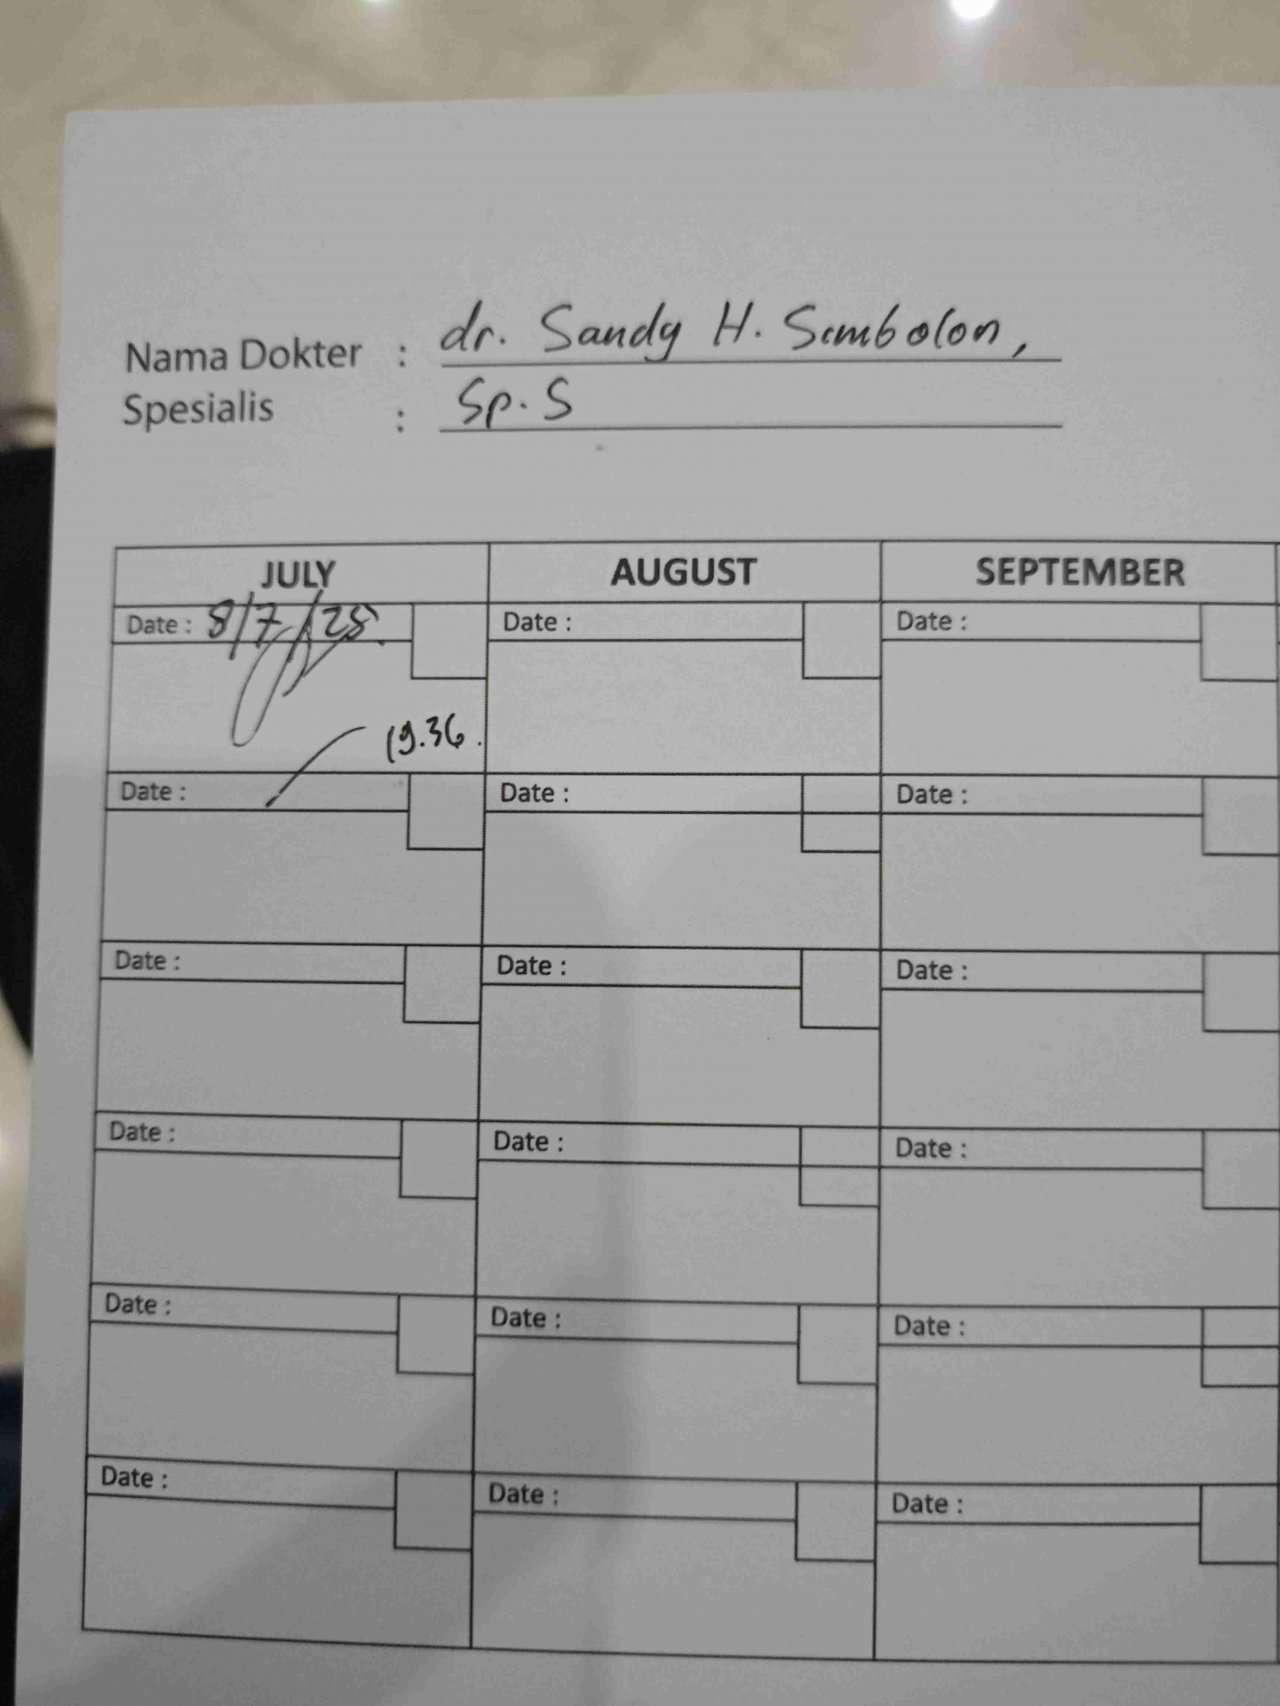 Nama Dokter : dr. Sandy H. Simbolon,
Spesialis : Sp. S
JULY AUGUST SEPTEMBER
Date : 8/7/25 Date : Date :
19.36
Date : Date : Date :
Date : Date : Date :
Date : Date : Date :
Date : Date : Date :
Date : Date : Date :